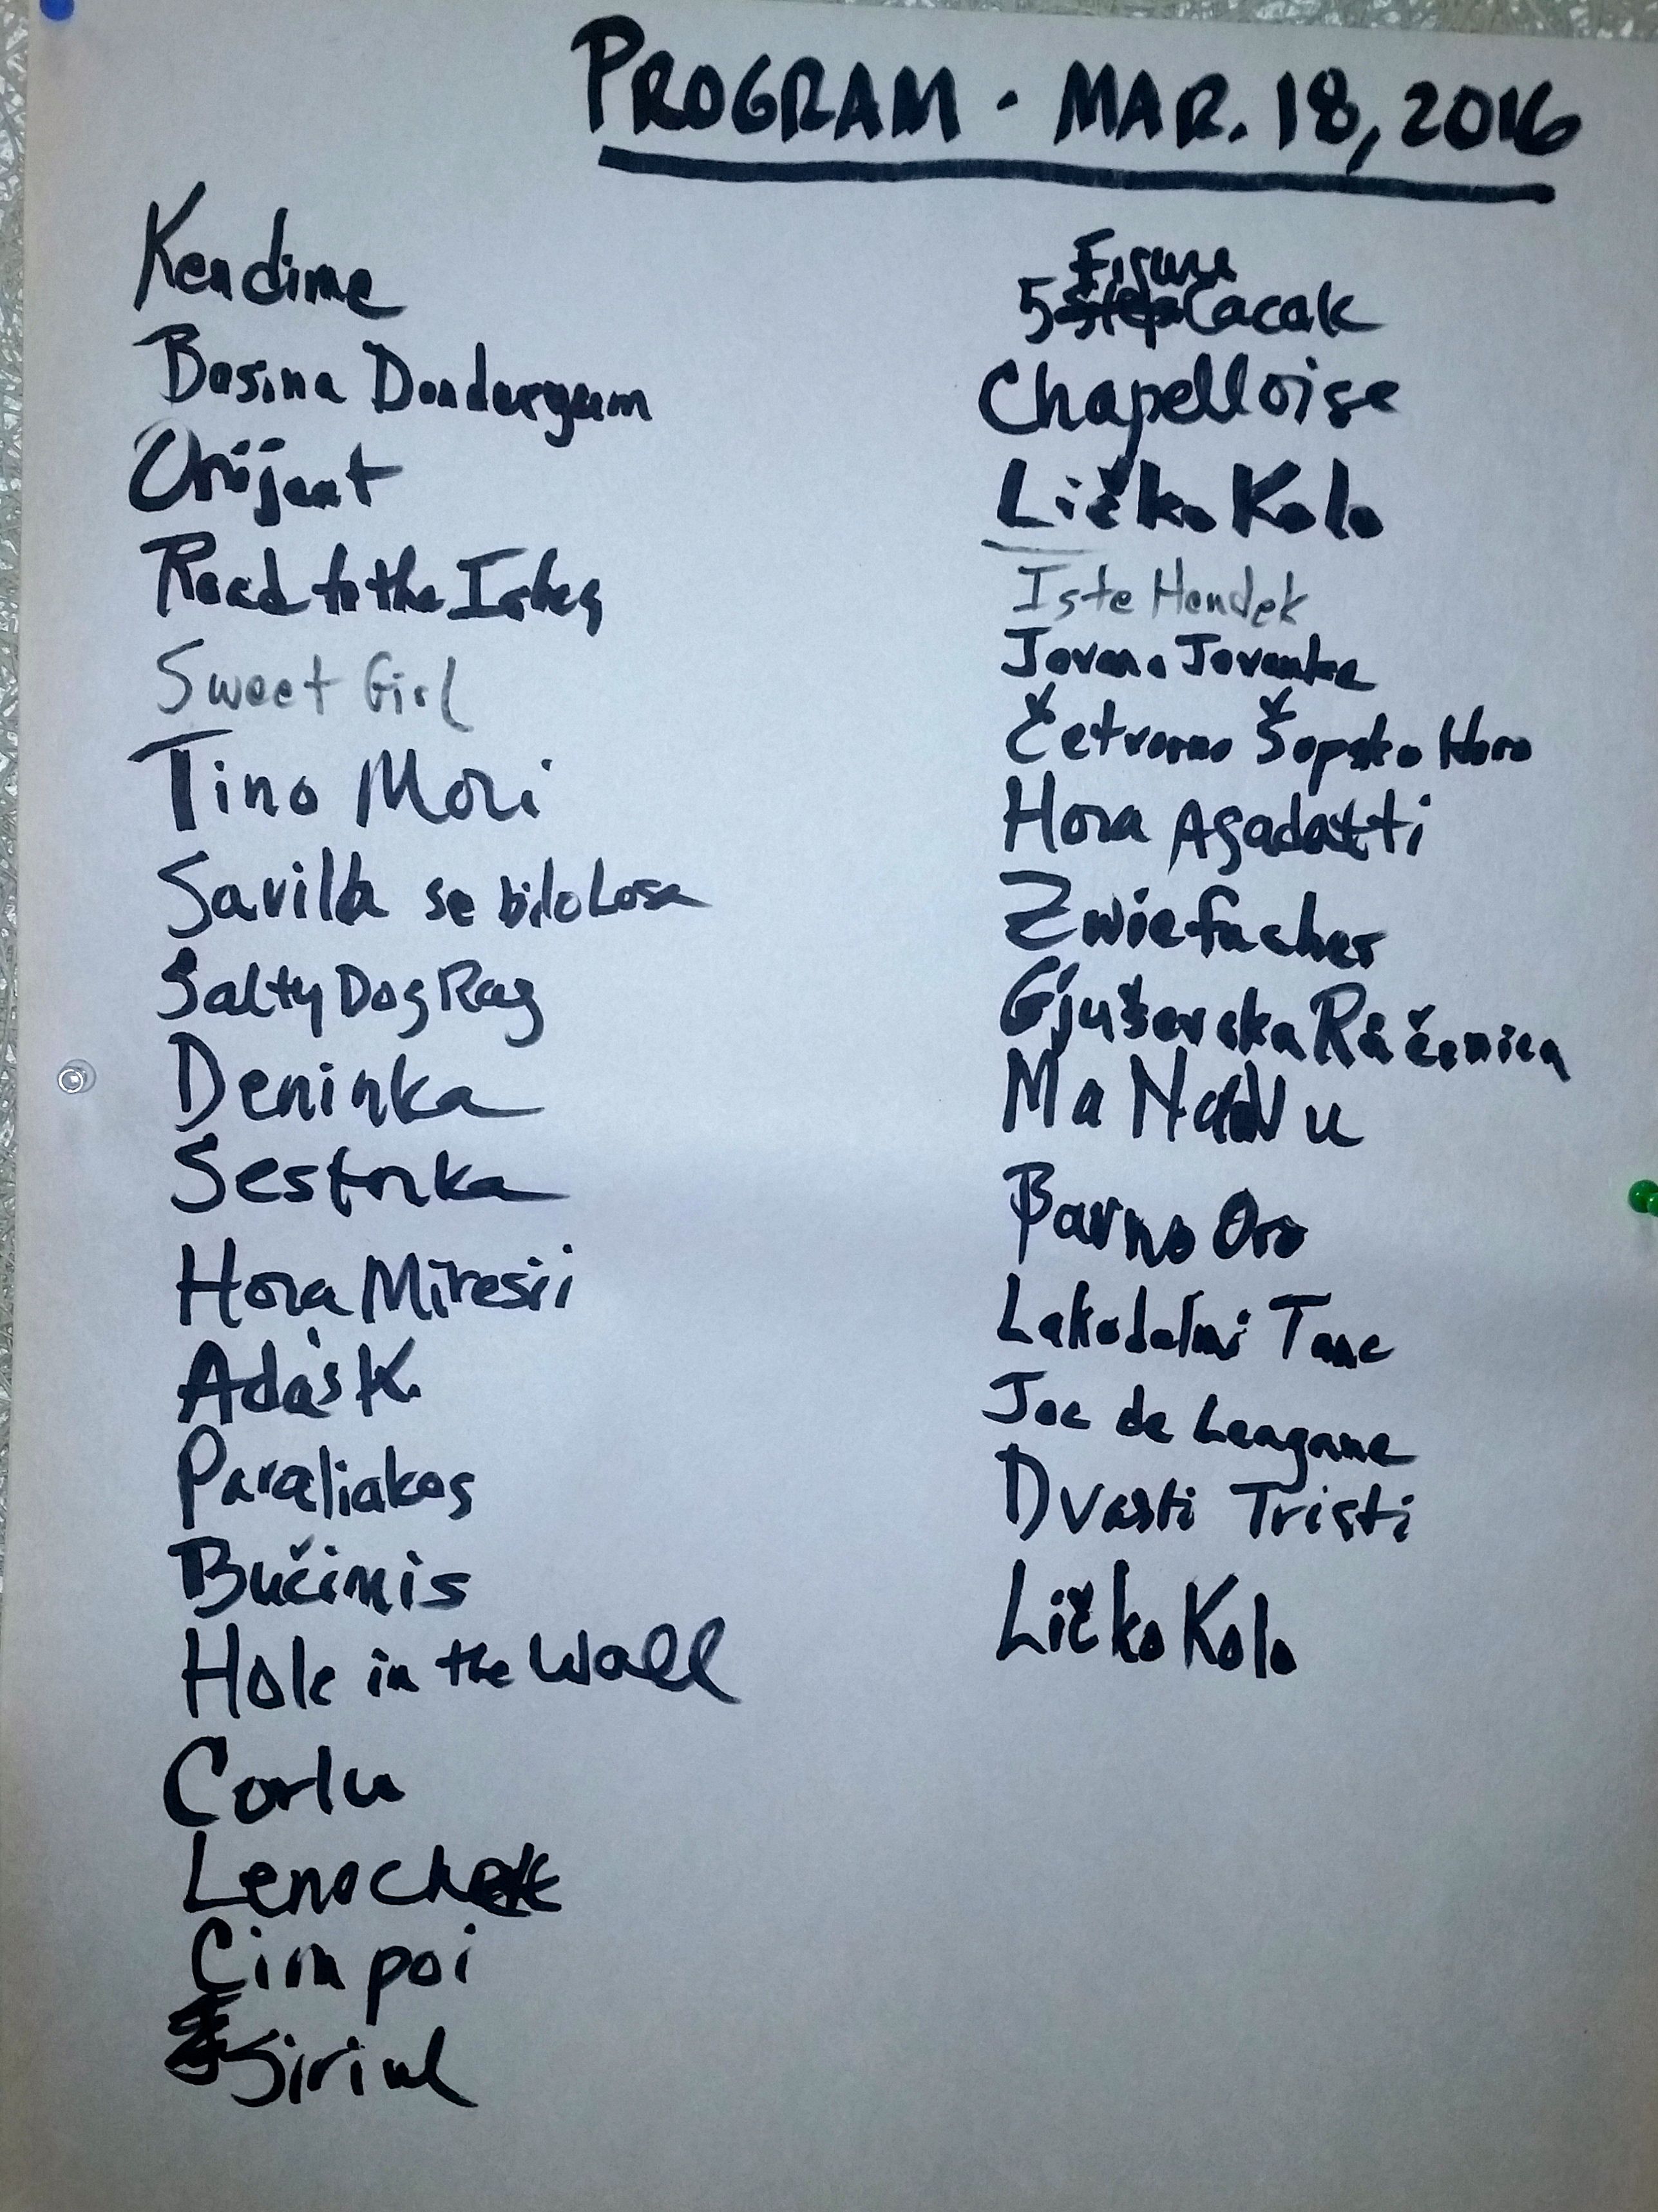 PROGRAM · MAR. 18, 2016
Kendime
Bosina Dondurgam
Orijent
Road to the Isles
Sweet Girl
Tino Mori
Savilla se bilo Losa
Salty Dog Rag
Deninka
Sestrka
Hora Miresii
Adás K.
Paraliakos
Bučimis
Hole in the Wall
Corlu
Cimpoi
Siriul
5 Figure Cacak
Chapelloise
Ličko Kolo
Iste Hendek
Jovano Jovanke
Četvorno Šopsko Horo
Hora Agadatti
Zwiefacher
Gjuševska Râčenica
Ma Na Vu
Pavno Oro
Tanc
Joc de Leagane
Dvasti Tristi
Ličko Kolo